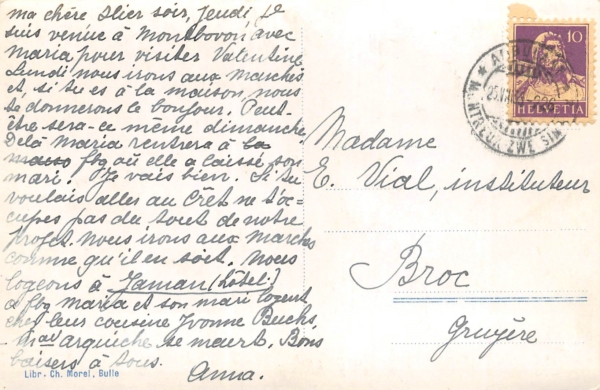 ma chère Hier soir, Jeudi, je
suis venue à Montbovon avec
Maria pour visiter Valentine
Lundi nous irons aux Marchés
et, si tu es à la maison, nous
te donnerons le bonjour. Peut-
être sera-ce même dimanche
Delà Maria rentrera à la
où elle a laissé son
mari. Je vais bien. Si tu
voulais aller au Crêt ne t'oc-
cupes pas du tout de notre
projet. Nous irons aux Marches
comme qu'il en soit. Nous
logeons à Jaman (hôtel.)
Maria et son mari logent
chez leur cousine Yvonne Buchs,
se meurt. Bons
baisers à tous.
Anna.
Libr. Ch. Morel, Bulle
10
HELVETIA
MONTREUX ZWEISIM
Madame
E. Vial, instituteur
Broc
Gruyère